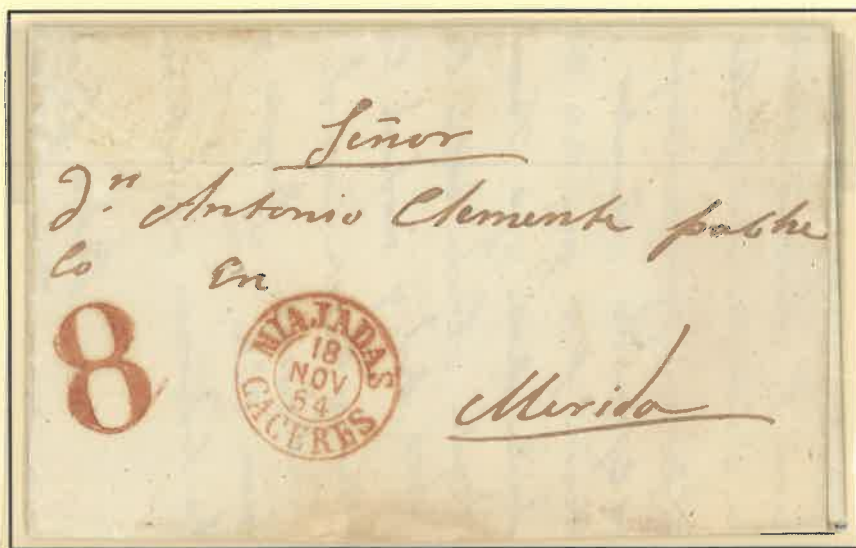 Señor
Dn Antonio Clemente
en
8
MIAJADAS
18
NOV
54
CACERES
Merida